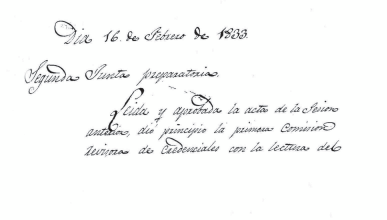 Dia 16. de Febrero de 1833.
Segunda Junta preparatoria.
Leida y aprobada la acta de la Sesion
anterior, dió principio la primera Comision
revisora de Credenciales con la lectura del